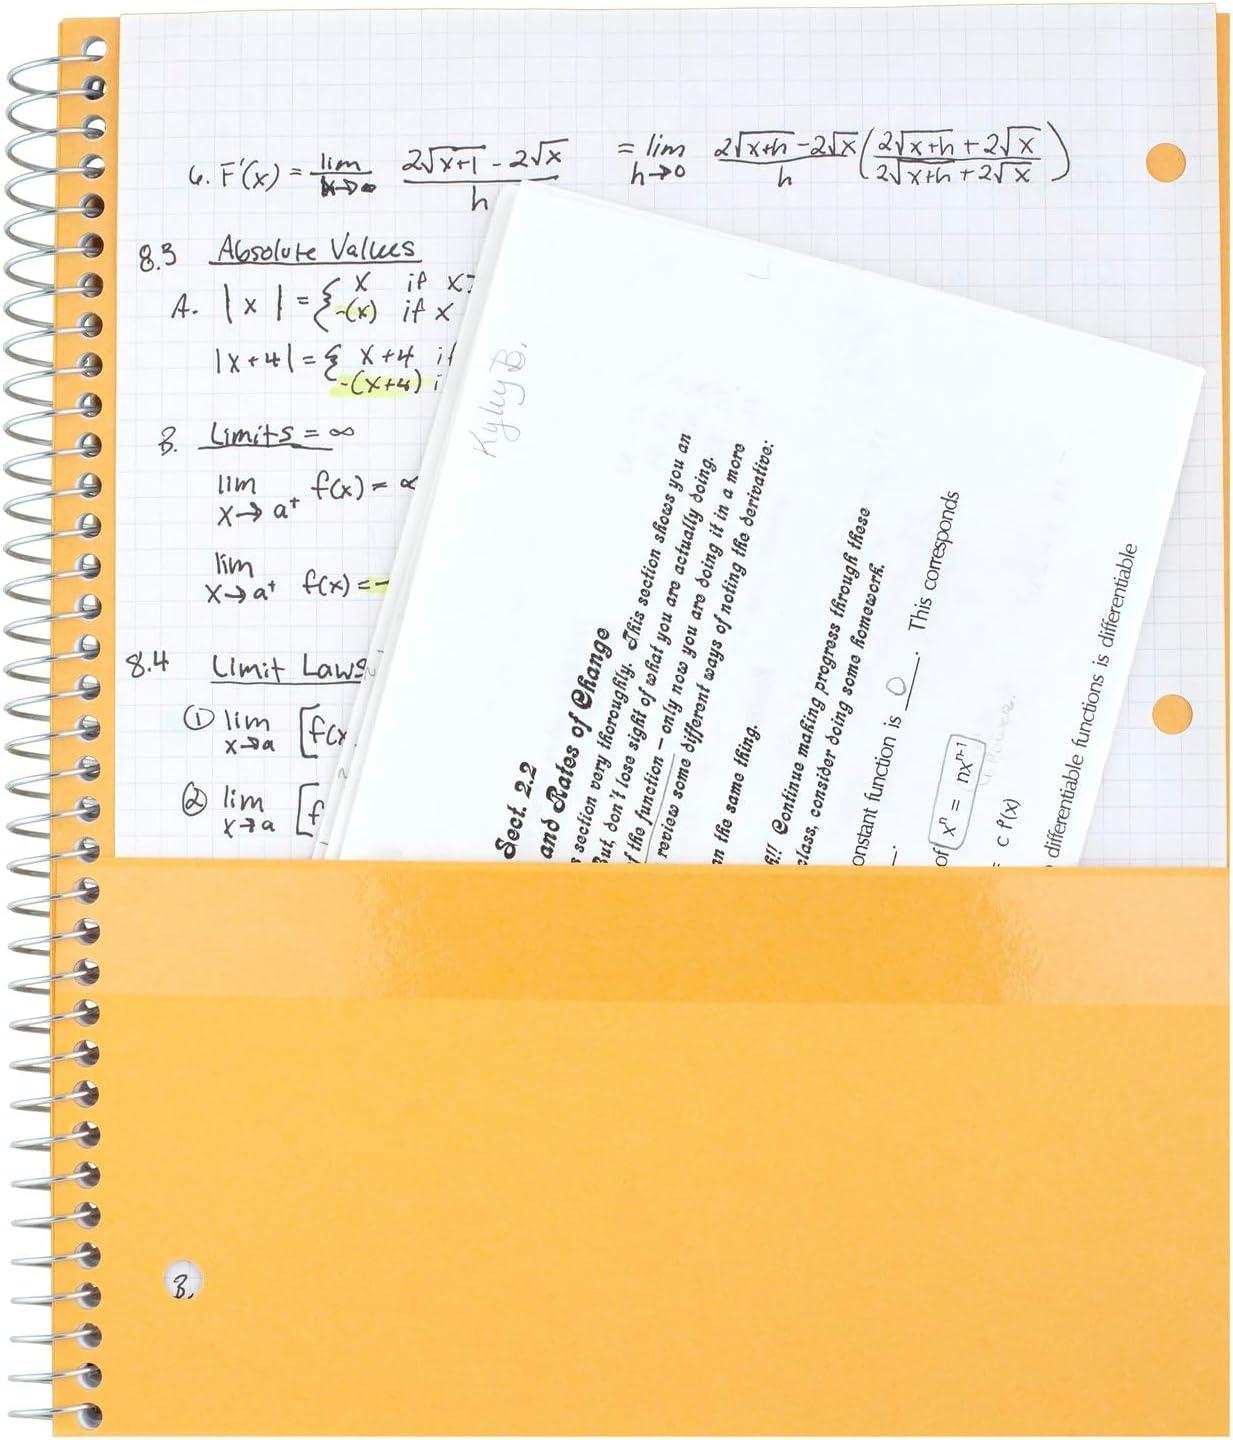 6. F'(x) = lim x→∞ 2√x+1 - 2√x / h = lim h→0 2√x+h - 2√x / h (2√x+h + 2√x / 2√x+h + 2√x)
8.3 Absolute Values
A. |x| = { x if x
-(x) if x
|x+4| = { x+4 if
-(x+4) i
B. Limits = ∞
lim x→a⁺ f(x) = ∝
lim x→a⁺ f(x) = -
8.4 Limit Laws
① lim x→a [f(x
② lim x→a [f
Kyley B.
Sect. 2.2
and Rates of Change
s section very thoroughly. This section shows you an
But, don't lose sight of what you are actually doing.
f the function – only now you are doing it in a more
review some different ways of noting the derivative:
n the same thing.
k!! Continue making progress through these
class, consider doing some homework.
onstant function is 0. This corresponds
of xⁿ = nxⁿ⁻¹
= c f'(x)
differentiable functions is differentiable
B.